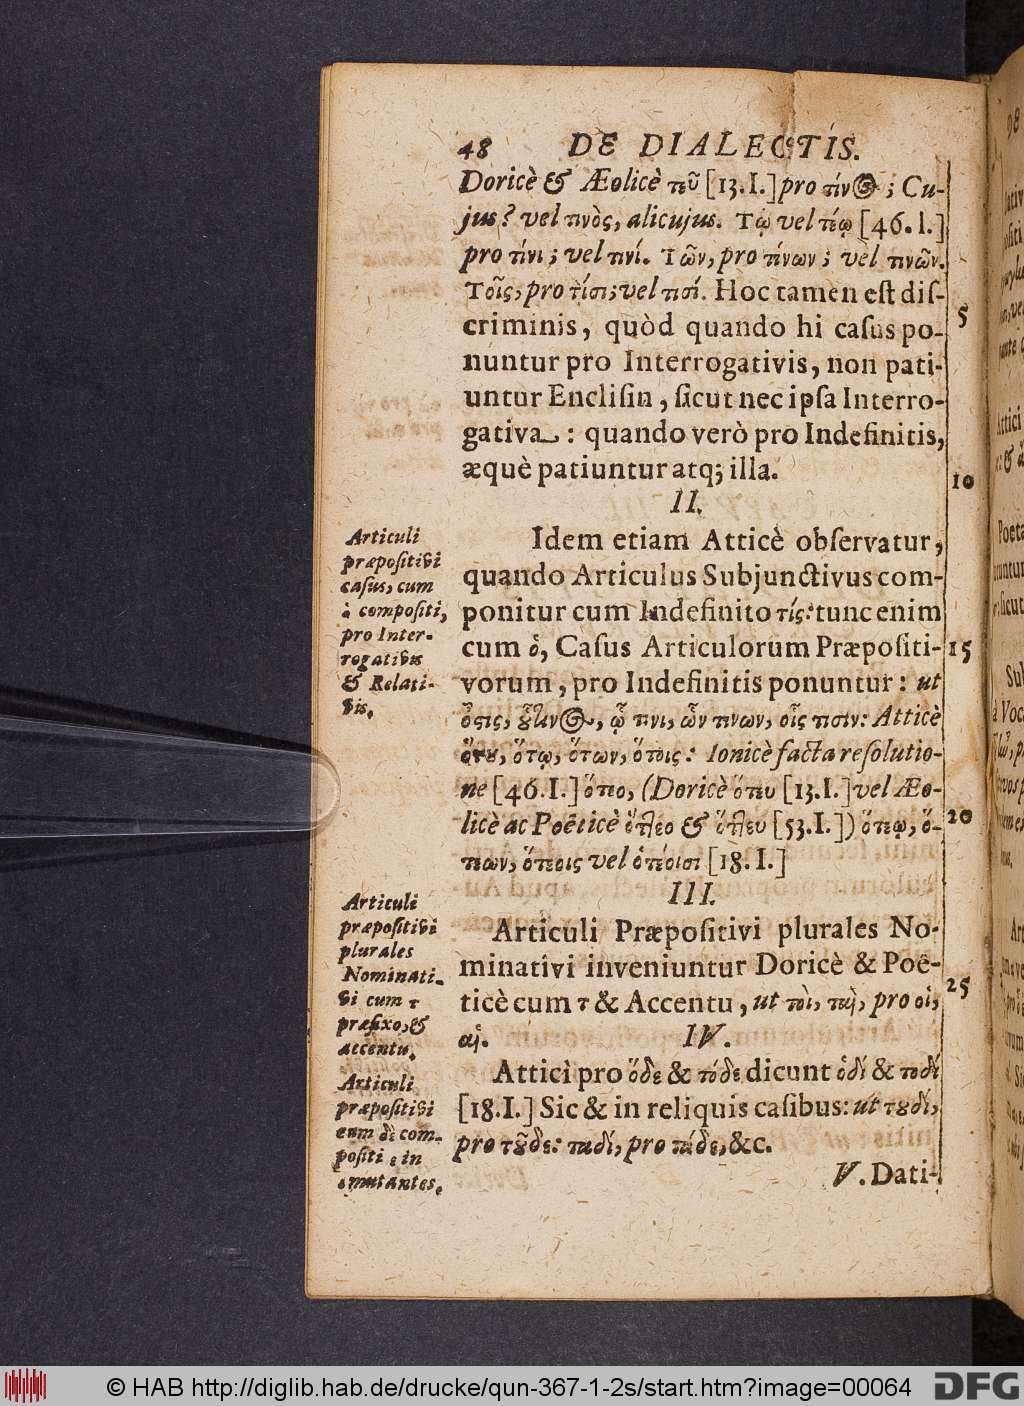 48 DE DIALECTIS.
Doricè & Æolicè τεῦ [13. I.] pro τίνος ; Cu-
jus? vel τινὸς, alicujus. Τῷ vel τέῳ [46. I.]
pro τίνι ; vel τινί. Τῶν, pro τίνων ; vel τινῶν.
Τοῖς, pro τίσι; vel τισί. Hoc tamen est diſ-
criminis, quòd quando hi caſus po-
nuntur pro Interrogativis, non pati-
untur Encliſin, ſicut nec ipſa Interro-
gativa : quando verò pro Indefinitis,
æquè patiuntur atq; illa.
II.
Idem etiam Atticè obſervatur,
quando Articulus Subjunctivus com-
ponitur cum Indefinito τίς: tunc enim
cum ὁ, Caſus Articulorum Præpoſiti-
vorum, pro Indefinitis ponuntur: ut
ὅςις, οὗτινος, ᾧ τινι, ὧν τινων, οἷς τισιν: Atticè
ὅτου, ὅτῳ, ὅτων, ὅτοις: Ionicè facta reſolutio-
ne [46. I.] ὅτεο, (Doricè ὅτευ [13. I.] vel Æo-
licè ac Poëticè ὅττεο & ὅττευ [53. I.]) ὅτεῳ, ὅ-
τεων, ὅτεοις vel ὁτέοισι [18. I.]
III.
Articuli Præpoſitivi plurales No-
minativi inveniuntur Doricè & Poë-
ticè cum τ & Accentu, ut τοὶ, ταὶ, pro οἱ,
αἱ.
IV.
Atticì pro ὅδε & τόδε dicunt ὁδί & τοδί
[18. I.] Sic & in reliquis caſibus: ut τουδί,
pro τοῦδε: ταδί, pro τάδε, &c.
V. Dati-
5
10
15
20
25
Articuli
præpoſitivi
caſus, cum
ὁ compoſiti,
pro Inter-
rogativis
& Relati-
vis.
Articuli
præpoſitivi
plurales
Nominati-
vi cum τ
præfixo, &
accentu.
Articuli
præpoſitivi
cum δὲ com-
poſiti, ε in
ι mutantes.
© HAB http://diglib.hab.de/drucke/qun-367-1-2s/start.htm?image=00064
DFG